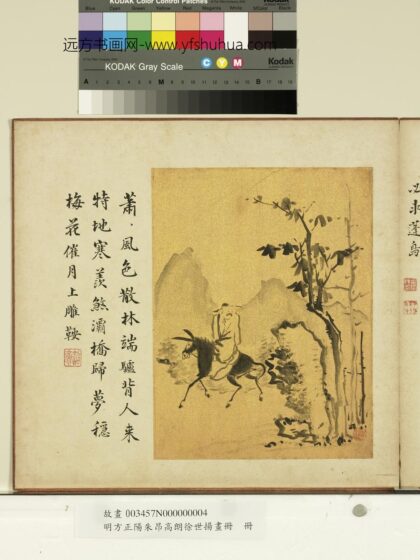 KODAK Color Control Patches
Blue Cyan Green Yellow Red Magenta White 3/Color Black
远方书画网-www.yfshuhua.com
KODAK Gray Scale
C Y M
Kodak
A 1 2 3 4 5 6 M 8 9 10 11 12 13 14 15 B 17 18 19
蕭〻風色散林端驢背人来
特地寒羨煞灞橋歸夢穩
梅花催月上雕鞍
故畫 003457N000000004
明方正陽朱昂高朗徐世揚畫冊 冊